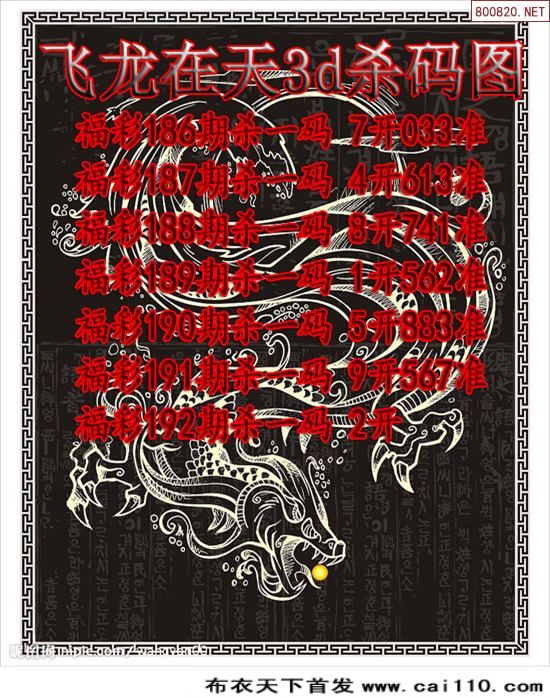 800820.NET
飞龙在天3d杀码图
福彩186期杀一码 7开033准
福彩187期杀一码 4开613准
福彩188期杀一码 8开741准
福彩189期杀一码 1开562准
福彩190期杀一码 5开883准
福彩191期杀一码 9开567准
福彩192期杀一码 2开
布衣天下首发 www.cai110.com